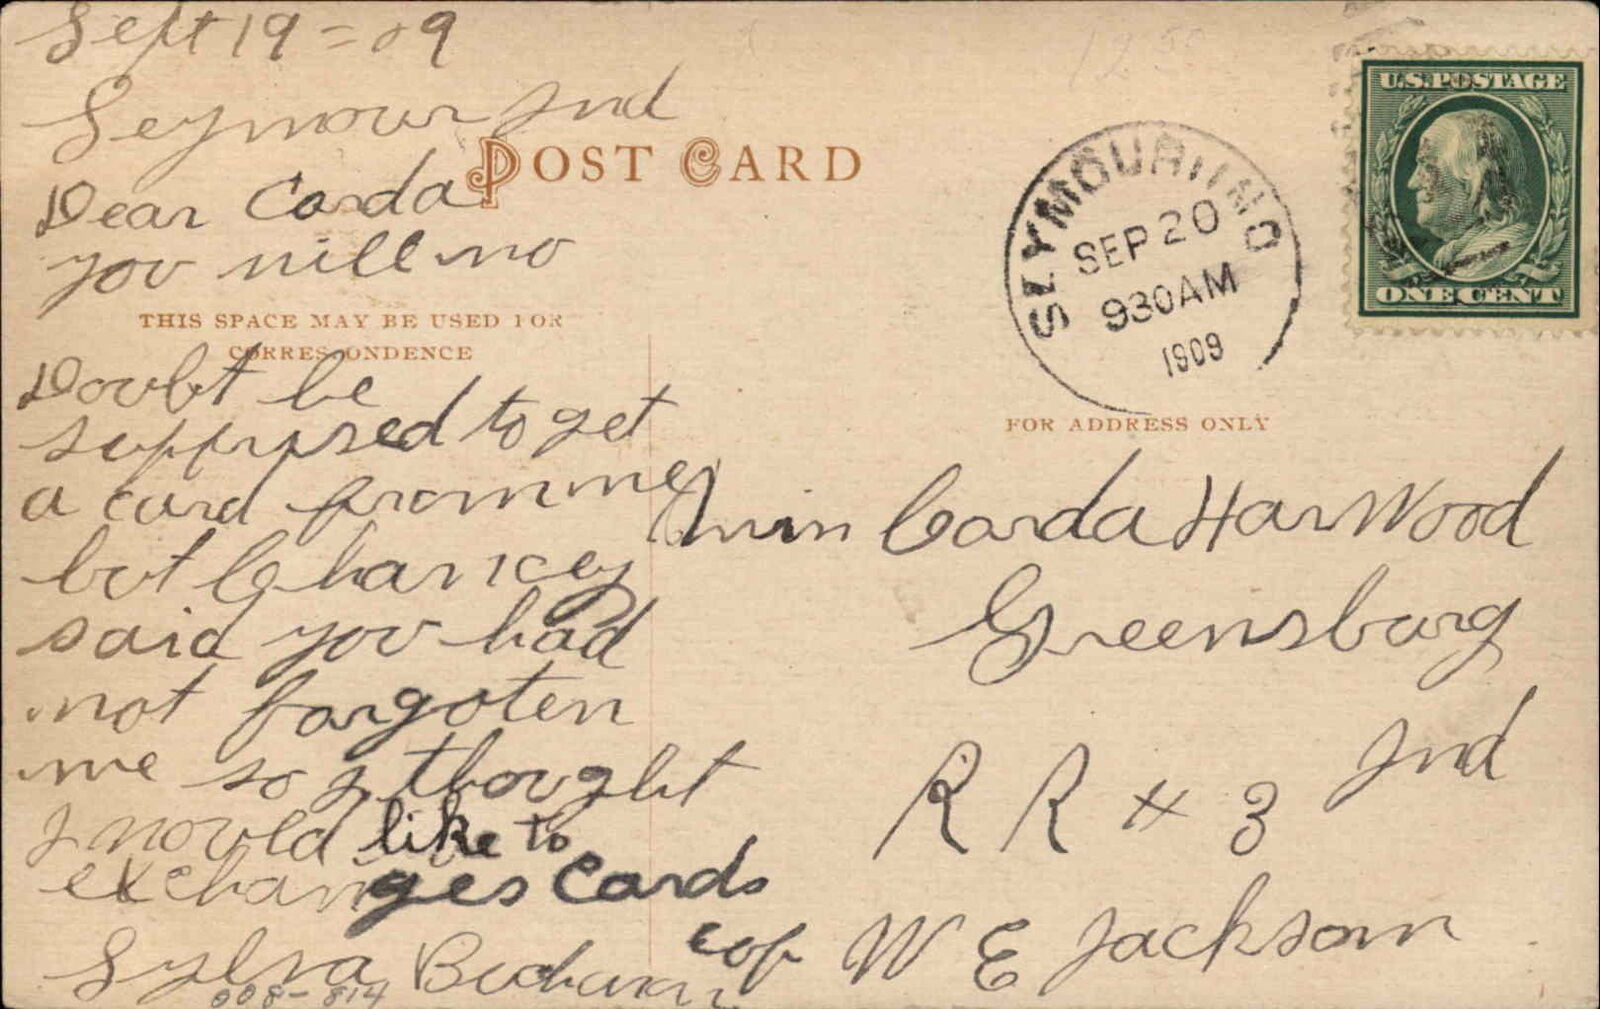 Sept 19 = 09
Seymour Ind
POST CARD
Dear Carda
you will no
THIS SPACE MAY BE USED FOR
CORRESPONDENCE
Doubt be
supprised to get
a card from me
but Chancey
said you had
not forgoten
me so I thought
I would like to
exchanges cards
Sylva Buchanan
008-814
U.S. POSTAGE
ONE CENT
SEYMOUR IND
SEP 20
930 AM
1909
FOR ADDRESS ONLY
Miss Carda Harwood
Greensburg
Ind
R R # 3
W E Jackson